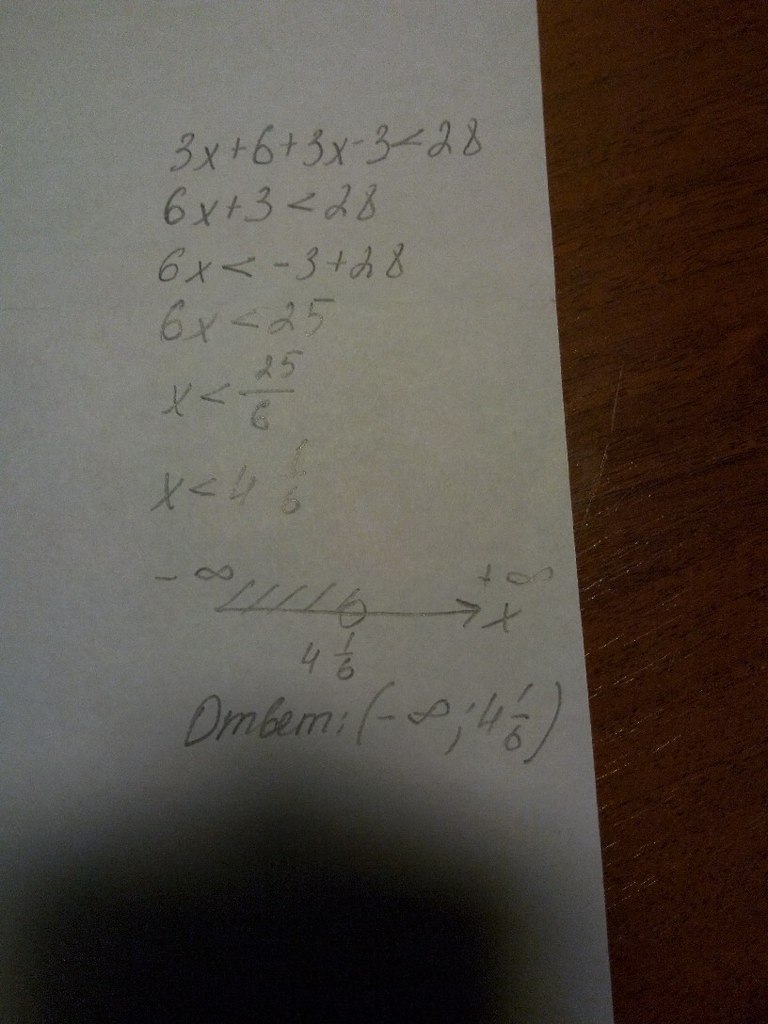 3x+6+3x-3<28
6x+3<28
6x<-3+28
6x<25
x<25/6
x<4 1/6
-∞ +∞
x
4 1/6
Ответ: (-∞; 4 1/6)